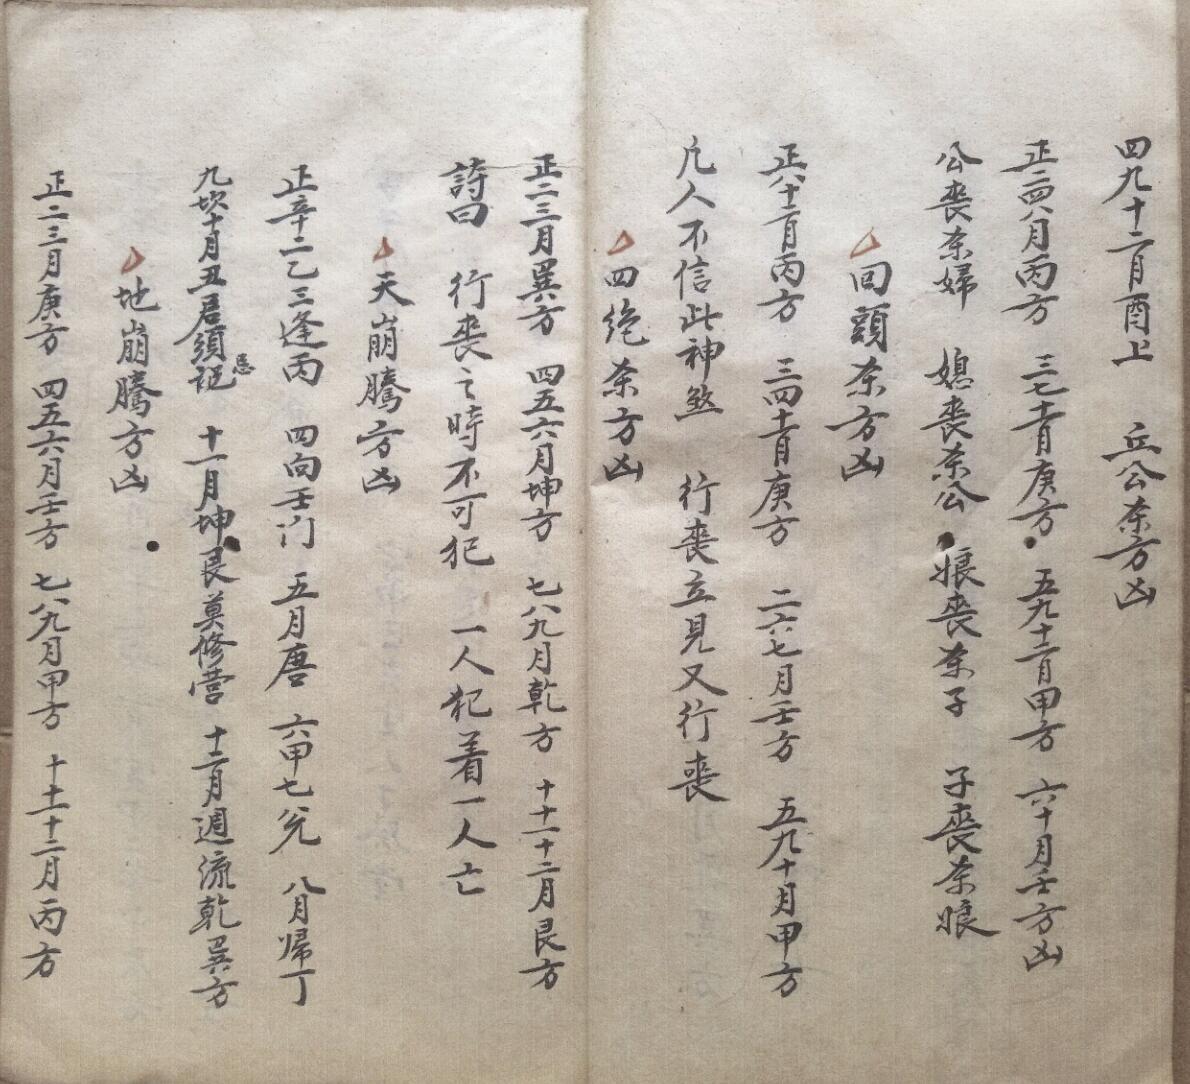 四九十二月酉上　丘公杀方凶
正二四八月丙方　三七十一月庚方　五九十二月甲方　六十月壬方凶
公喪杀婦　媳喪杀公　娘喪杀子　子喪杀娘
回頭杀方凶
正八十二月丙方　三四十一月庚方　二六七月壬方　五九十月甲方
凡人不信此神煞　行喪立見又行喪
四绝杀方凶
正二三月巽方　四五六月坤方　七八九月乾方　十十一十二月艮方
詩曰　行喪之時不可犯　一人犯着一人亡
天崩騰方凶
正辛二乙三逢丙　四向壬门　五月唐　六甲七兊　八月歸丁
九坎十月丑居須記忌　十一月坤艮莫修营　十二月週流乾巽方
地崩騰方凶
正二三月庚方　四五六月壬方　七八九月甲方　十十一十二月丙方